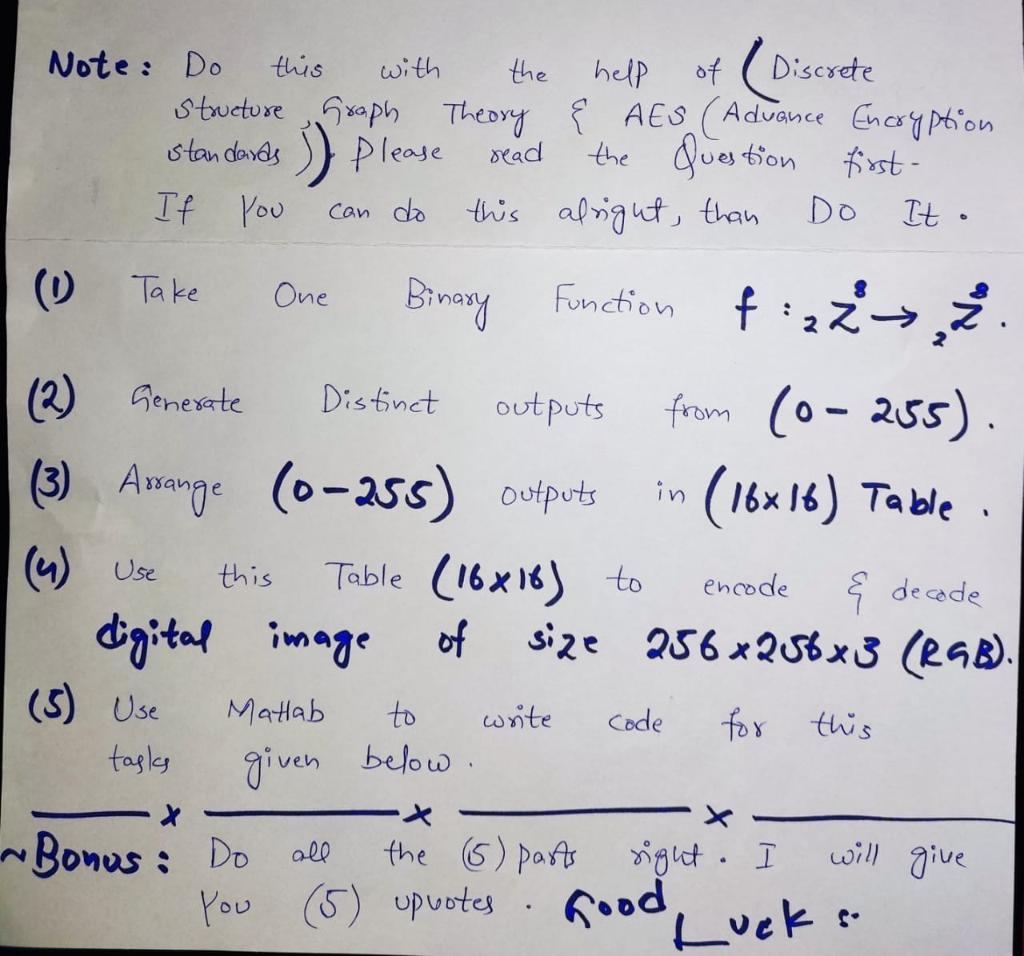 Note: Do this with the help of (Discrete
Structure, Graph Theory & AES (Advance Encryption
standards)) Please read the Question first-
If You can do this alright, than Do It.
(1) Take One Binary Function f : ₂Z⁸ → ₂Z⁸.
(2) Generate Distinct outputs from (0-255).
(3) Arrange (0-255) outputs in (16x16) Table.
(4) Use this Table (16x16) to encode & decode
digital image of size 256x256x3 (RGB).
(5) Use Matlab to write code for this
tasks given below.
~Bonus: Do all the (5) parts right. I will give
You (5) upvotes. Good Luck :